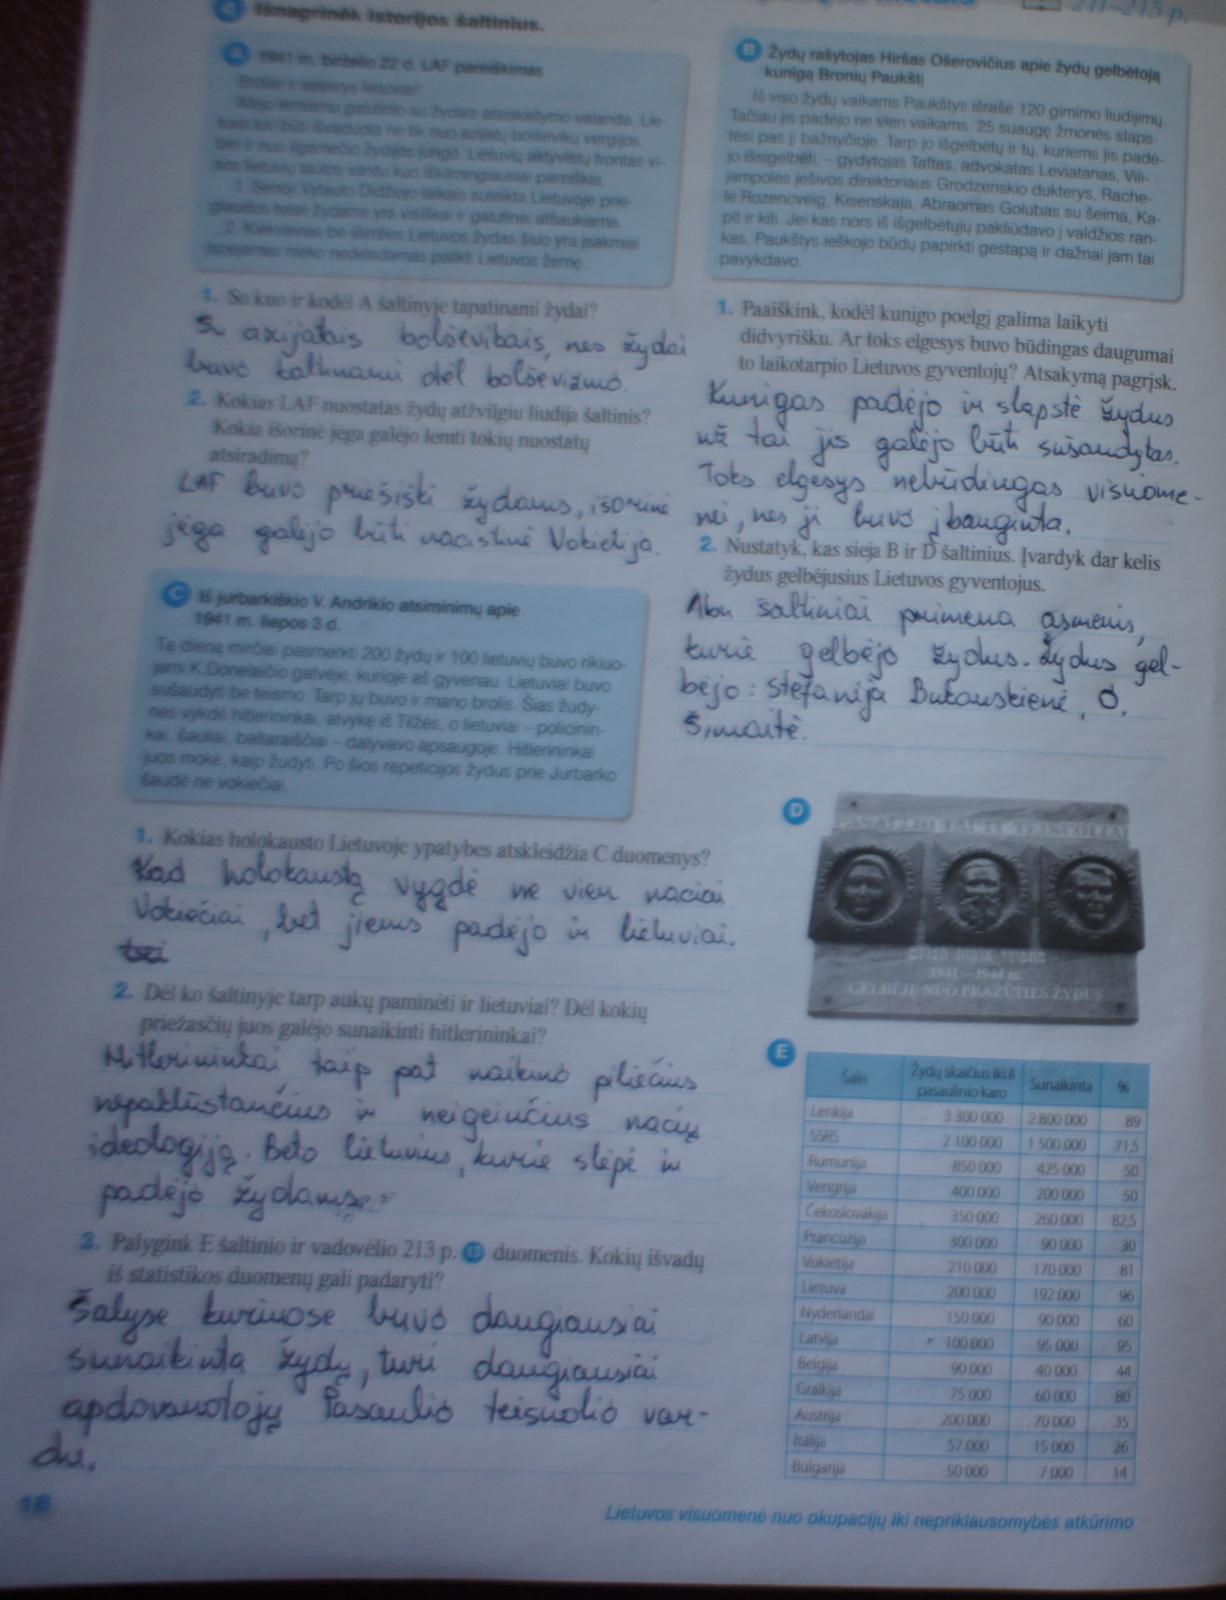 4 Išnagrinėk istorijos šaltinius.
211–215 p.
A 1941 m. birželio 22 d. LAF pareiškimas
Broliai ir seserys lietuviai!
Atėjo lemiama galutinio su žydais atsiskaitymo valanda. Lie-
tuva turi būti išvaduota ne tik nuo azijatų bolševikų vergijos,
bet ir nuo ilgamečio žydijos jungo. Lietuvių aktyvistų frontas vi-
sos lietuvių tautos vardu kuo iškilmingiausiai pareiškia:
1. Senoji Vytauto Didžiojo laikais suteikta Lietuvoje prie-
glaudos teisė žydams yra visiškai ir galutinai atšaukiama.
2. Kiekvienas be išimties Lietuvos žydas šiuo yra įsakmiai
įspėjamas nieko nedelsdamas palikti Lietuvos žemę.
1. Su kuo ir kodėl A šaltinyje tapatinami žydai?
Su azijatais bolševikais, nes žydai
buvo kaltinami dėl bolševizmo.
2. Kokias LAF nuostatas žydų atžvilgiu liudija šaltinis?
Kokia išorinė jėga galėjo lemti tokių nuostatų
atsiradimą?
LAF buvo priešiški žydams, išorinė
jėga galėjo būti nacistinė Vokietija.
C Iš jurbarkiškio V. Andrikio atsiminimų apie
1941 m. liepos 3 d.
Tą dieną mirčiai pasmerkti 200 žydų ir 100 lietuvių buvo rikiuo-
jami K. Donelaičio gatvėje, kurioje aš gyvenau. Lietuviai buvo
sušaudyti be teismo. Tarp jų buvo ir mano brolis. Šias žudy-
nes vykdė hitlerininkai, atvykę iš Tilžės, o lietuviai – policinin-
kai, šauliai, baltaraiščiai – dalyvavo apsaugoje. Hitlerininkai
juos mokė, kaip žudyti. Po šios repeticijos žydus prie Jurbarko
šaudė ne vokiečiai.
1. Kokias holokausto Lietuvoje ypatybes atskleidžia C duomenys?
Kad holokaustą vygdė ne vien naciai
Vokiečiai, bet jiems padėjo ir lietuviai.
2. Dėl ko šaltinyje tarp aukų paminėti ir lietuviai? Dėl kokių
priežasčių juos galėjo sunaikinti hitlerininkai?
Hitlerininkai taip pat naikino piliečius
nepaklūstančius ir neigeiučius nacių
ideologiją. Beto lietuvius, kurie slėpė ir
padėjo žydams.
3. Palygink E šaltinio ir vadovėlio 213 p. duomenis. Kokių išvadų
iš statistikos duomenų gali padaryti?
Šalyse kuriuose buvo daugiausiai
sunaikinta žydų, turi daugiausiai
apdovanotojų Pasaulio teisuolio var-
du.
18
B Žydų rašytojas Hiršas Ošerovičius apie žydų gelbėtoją
kunigą Bronių Paukštį
Iš viso žydų vaikams Paukštys išrašė 120 gimimo liudijimų.
Tačiau jis padėjo ne vien vaikams. 25 suaugę žmonės slaps-
tėsi pas jį bažnyčioje. Tarp jo išgelbėtų ir tų, kuriems jis padė-
jo išsigelbėti, – gydytojas Taftas, advokatas Leviatanas, Vili-
jampolės ješivos direktoriaus Grodzenskio dukterys, Rache-
lė Rozencveig, Kisenskaja, Abraomas Golubas su šeima, Ka-
pit ir kiti. Jei kas nors iš išgelbėtųjų pakliūdavo į valdžios ran-
kas, Paukštys ieškojo būdų papirkti gestapą ir dažnai jam tai
pavykdavo.
1. Paaiškink, kodėl kunigo poelgį galima laikyti
didvyrišku. Ar toks elgesys buvo būdingas daugumai
to laikotarpio Lietuvos gyventojų? Atsakymą pagrįsk.
Kunigas padėjo ir slapstė žydus
už tai jis galėjo būti sušaudytas.
Toks elgesys nebūdingas visuome-
nei, nes ji buvo įbauginta.
2. Nustatyk, kas sieja B ir D šaltinius. Įvardyk dar kelis
žydus gelbėjusius Lietuvos gyventojus.
Abu šaltiniai primena asmenis,
kurie gelbėjo žydus. Žydus gel-
bėjo: Stefanija Bukauskienė, O.
Šimaitė.
D
PASAULIO TAUTŲ TEISUOLIAI
1941–1944 m.
GELBĖJĘ NUO PRAŽŪTIES ŽYDUS
E
Šalis Žydų skaičius iki II pasaulinio karo Sunaikinta %
Lenkija 3 300 000 2 800 000 89
SSRS 2 100 000 1 500 000 71,5
Rumunija 850 000 425 000 50
Vengrija 400 000 200 000 50
Čekoslovakija 350 000 260 000 82,5
Prancūzija 300 000 90 000 30
Vokietija 210 000 170 000 81
Lietuva 200 000 192 000 96
Nyderlandai 150 000 90 000 60
Latvija 100 000 95 000 95
Belgija 90 000 40 000 44
Graikija 75 000 60 000 80
Austrija 200 000 70 000 35
Italija 57 000 15 000 26
Bulgarija 50 000 7 000 14
Lietuvos visuomenė nuo okupacijų iki nepriklausomybės atkūrimo